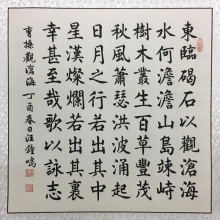 東臨碣石以觀滄海
水何澹澹山島竦峙
樹木叢生百草豐茂
秋風蕭瑟洪波涌起
日月之行若出其中
星漢燦爛若出其裏
幸甚至哉歌以詠志
曹操觀滄海 丁酉春日汪鐘鳴